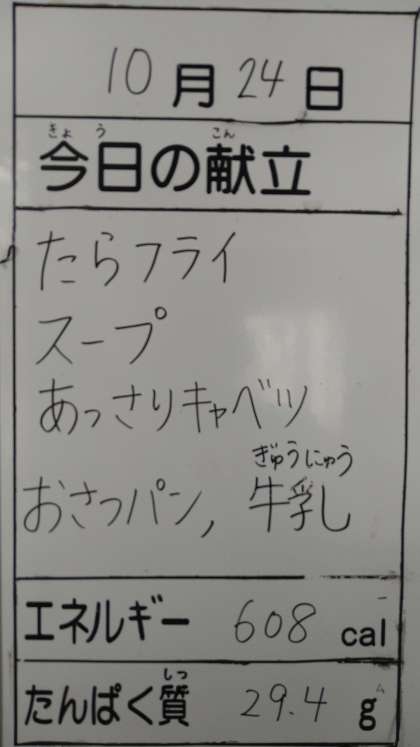 10月24日
きょう こん
今日の献立
たらフライ
スープ
あっさりキャベツ
ぎゅうにゅう
おさつパン, 牛乳
エネルギー 608 cal
しつ
たんぱく質 29.4 g